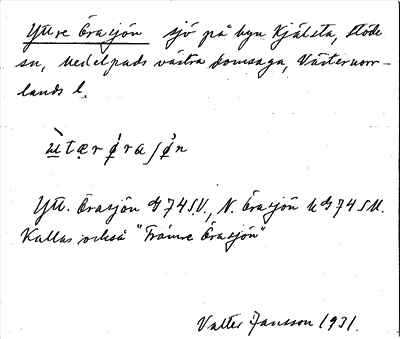 Yttre Örasjön sjö på byn Kjälsta, Stöde
sn, Medelpads västra domsaga, Västernorr-
lands l.
Ytt. Örasjön G74SV., N. Örasjön
Kallas också "Främre Örasjön"
Valter Jansson 1931.